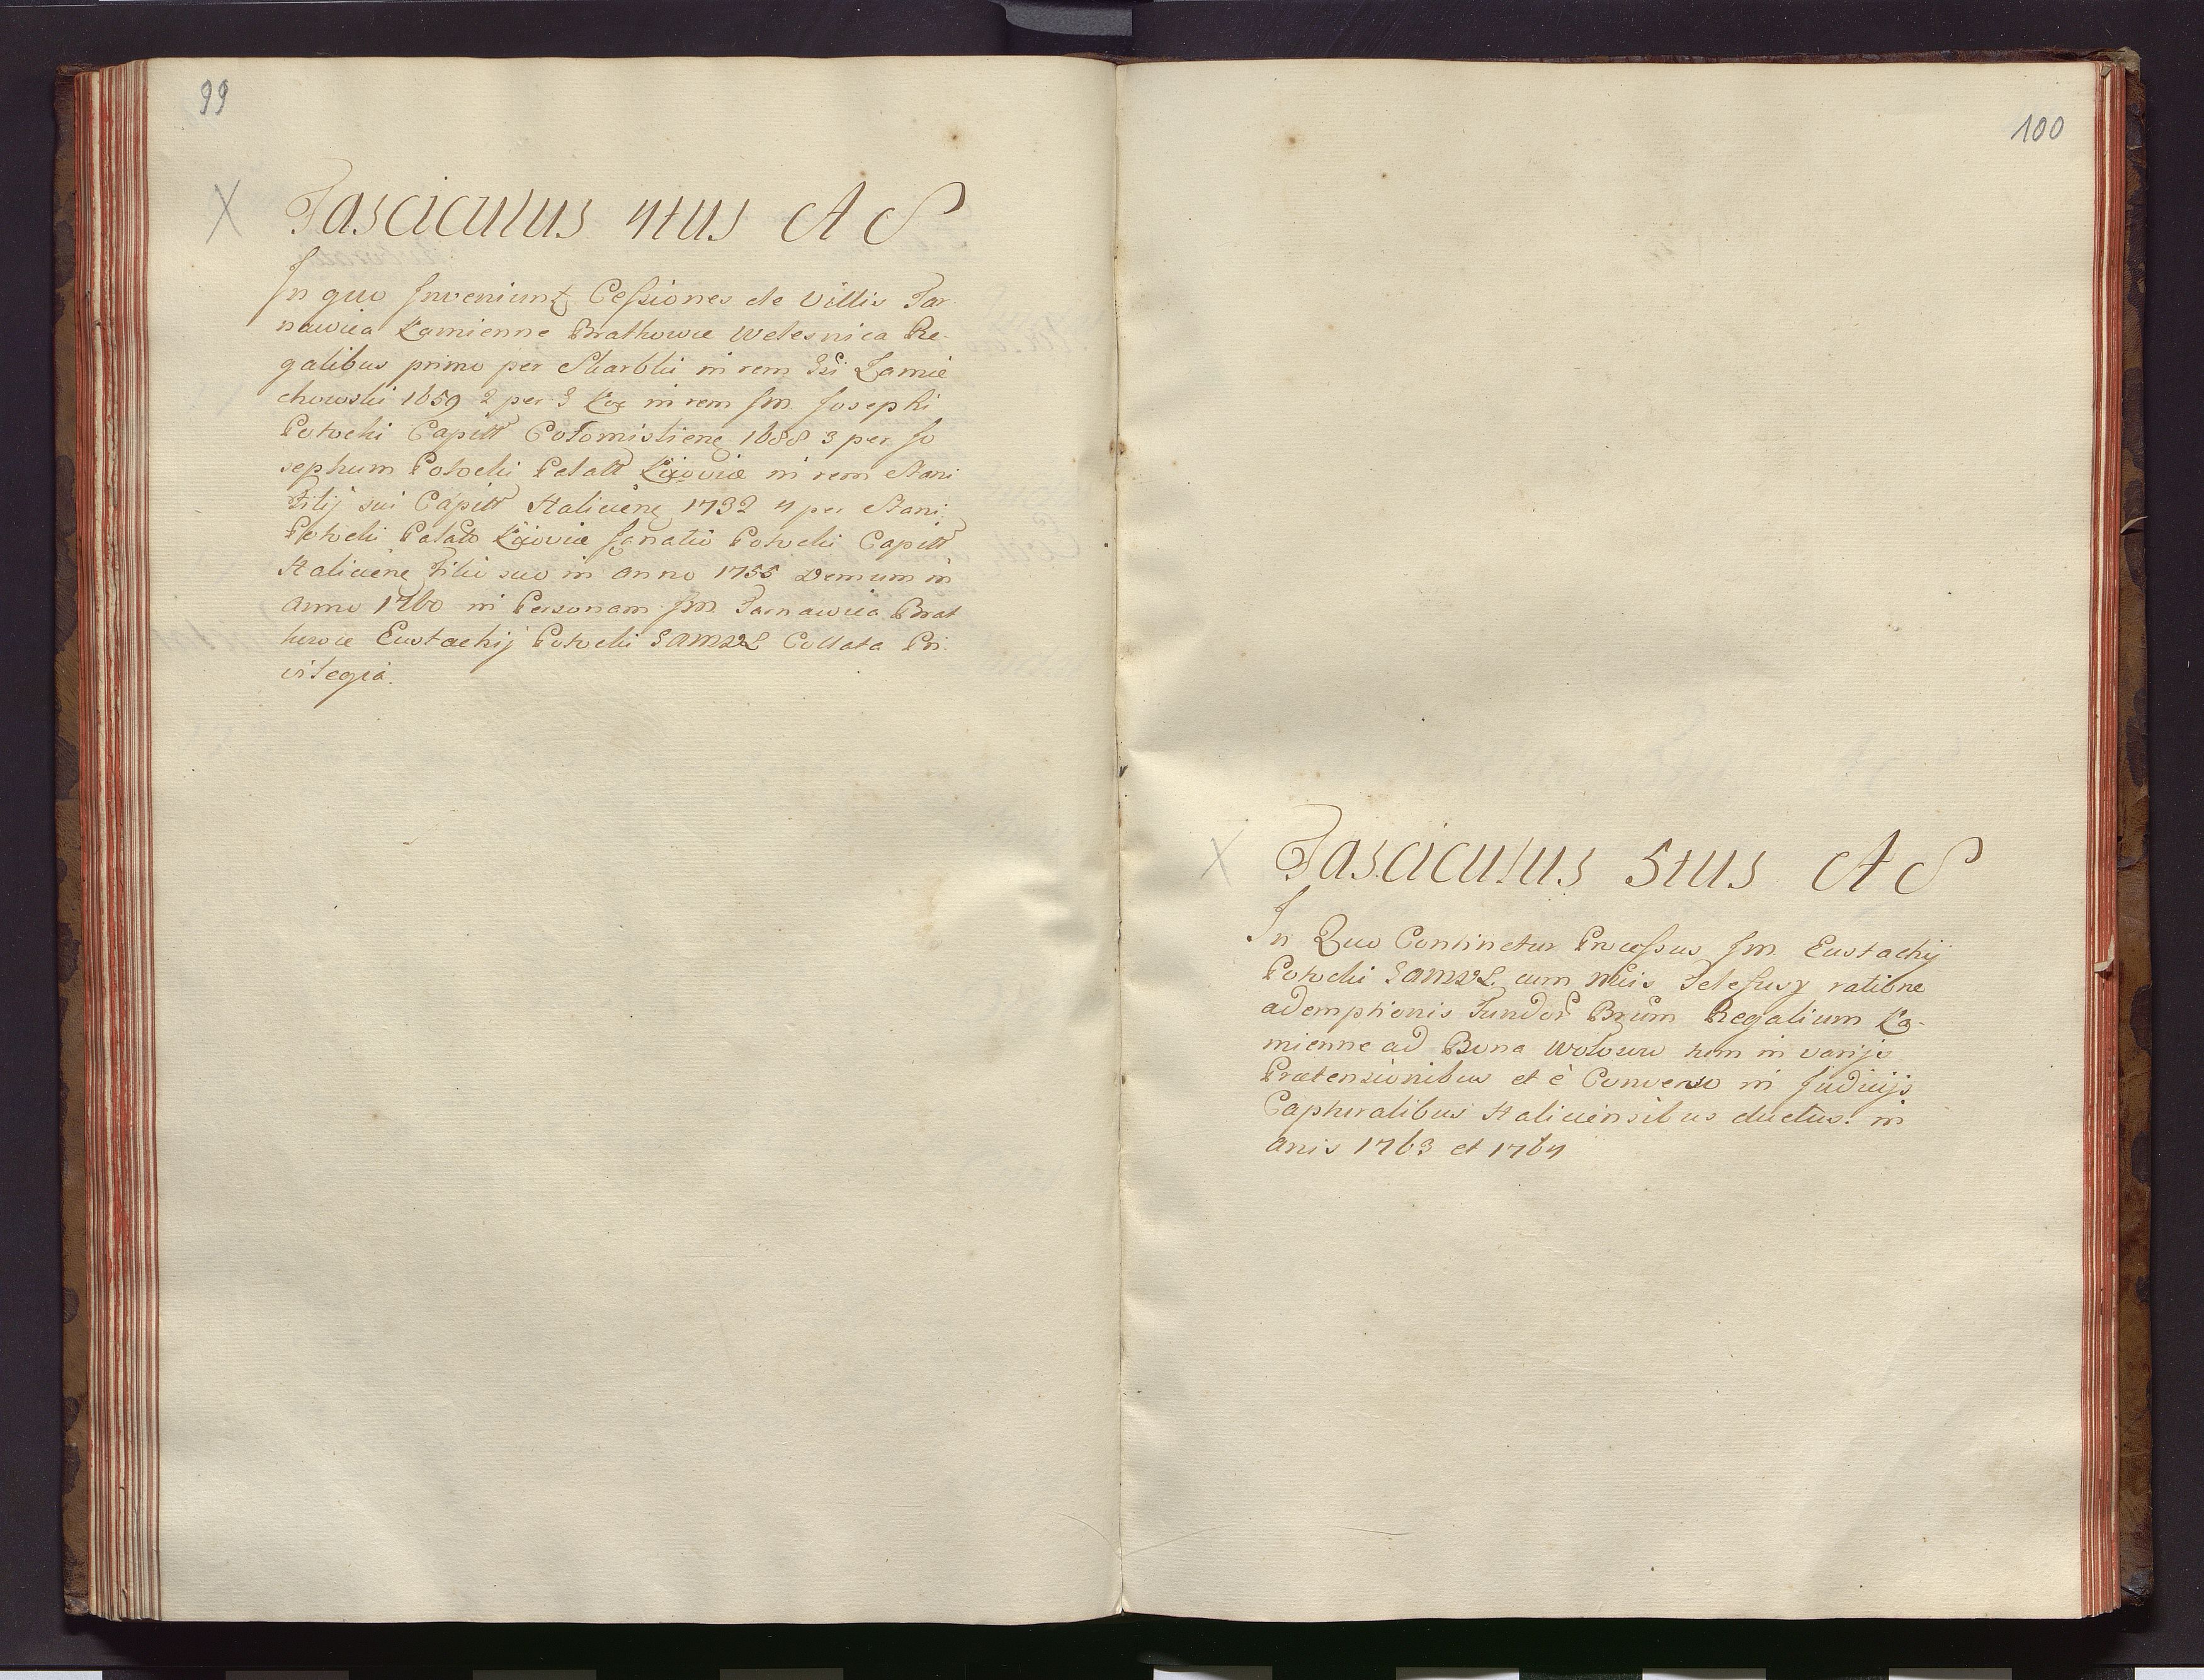 99
X Fasciculus 4tus A 8
In quo Inveniunt Cessiones de Villis Tar
nawica Kamienne Bratkowce Welesnica Re-
galibus primo per Skarbki in rem Zamie
chowski 1659 2 per in rem Im Josephi
Potocki Capitt Colomistien 1688 3 per Jo
sephum Potocki Palatt Kijoviæ in rem Stani
Filij sui Capitt Halicien 1732 4 per Stani
Potocki Palatt Kijoviæ Ignatio Potocki Capitt
Haliciene Filio suo in anno 1755 Demum in
Anno 1760 in Personam Im Tarnawica Brat
kowce Eustachij Potocki GAMWXL Collata Pri
vilegia.
100
X Fasciculus 5tus A 8
In Quo Continetur Processus Im Eustachij
Potocki GAMWXL. cum Mcis ratione
ademptionis Fundor Bnum Regalium Ka-
mienne ad Bona Wolosow tum in varijs
Prætensionibus et è Converso in Judicijs
Capturalibus Haliciensibus ductus. in
Anis 1763 et 1764